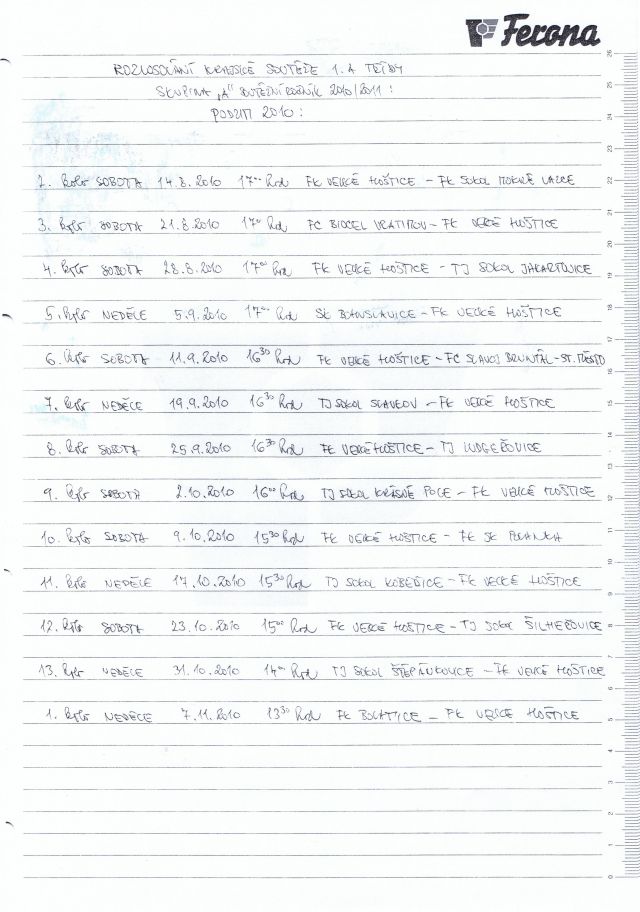 Ferona
ROZLOSOVÁNÍ KRAJSKÉ SOUTĚŽE 1.A TŘÍDY
SKUPINA "A" SOUTĚŽNÍ ROČNÍK 2010/2011:
PODZIM 2010:
2. kolo SOBOTA 14.8.2010 17⁰⁰ hod FK VELKÉ HOŠTICE - FK SOKOL MOKRÉ LAZCE
3. kolo SOBOTA 21.8.2010 17⁰⁰ hod FC BIOCEL VRATIMOV - FK VELKÉ HOŠTICE
4. kolo SOBOTA 28.8.2010 17⁰⁰ hod FK VELKÉ HOŠTICE - TJ SOKOL JAKARTOVICE
5. kolo NEDĚLE 5.9.2010 17⁰⁰ hod SK BOHUSLAVICE - FK VELKÉ HOŠTICE
6. kolo SOBOTA 11.9.2010 16³⁰ hod FK VELKÉ HOŠTICE - FC SLAVOJ BRUNTÁL - ST. MĚSTO
7. kolo NEDĚLE 19.9.2010 16³⁰ hod TJ SOKOL SLAVKOV - FK VELKÉ HOŠTICE
8. kolo SOBOTA 25.9.2010 16³⁰ hod FK VELKÉ HOŠTICE - TJ LUDGEŘOVICE
9. kolo SOBOTA 2.10.2010 16⁰⁰ hod TJ SOKOL KRÁSNÉ POLE - FK VELKÉ HOŠTICE
10. kolo SOBOTA 9.10.2010 15³⁰ hod FK VELKÉ HOŠTICE - FK SK POLANKA
11. kolo NEDĚLE 17.10.2010 15³⁰ hod TJ SOKOL KOBEŘICE - FK VELKÉ HOŠTICE
12. kolo SOBOTA 23.10.2010 15⁰⁰ hod FK VELKÉ HOŠTICE - TJ SOKOL ŠILHEŘOVICE
13. kolo NEDĚLE 31.10.2010 14⁰⁰ hod TJ SOKOL ŠTĚPÁNKOVICE - FK VELKÉ HOŠTICE
1. kolo NEDĚLE 7.11.2010 13³⁰ hod FK BOLATICE - FK VELKÉ HOŠTICE